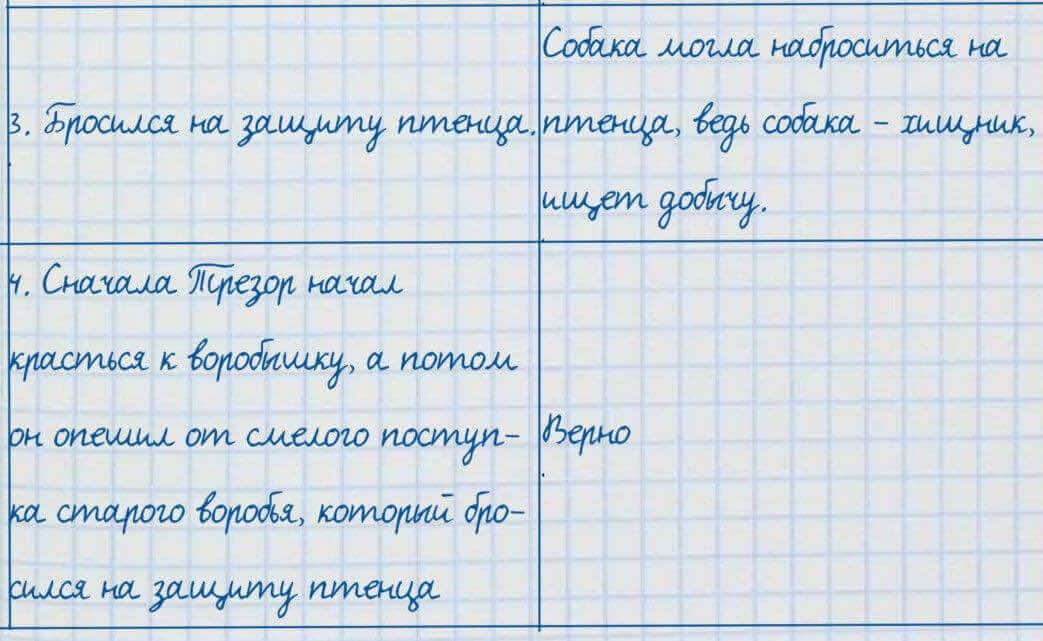 Собака могла наброситься на
3. Бросился на защиту птенца. птенца, ведь собака – хищник,
ищет добычу.
4. Сначала Трезор начал
красться к воробышку, а потом
он опешил от смелого поступ-
Верно
ка старого воробья, который бро-
сился на защиту птенца